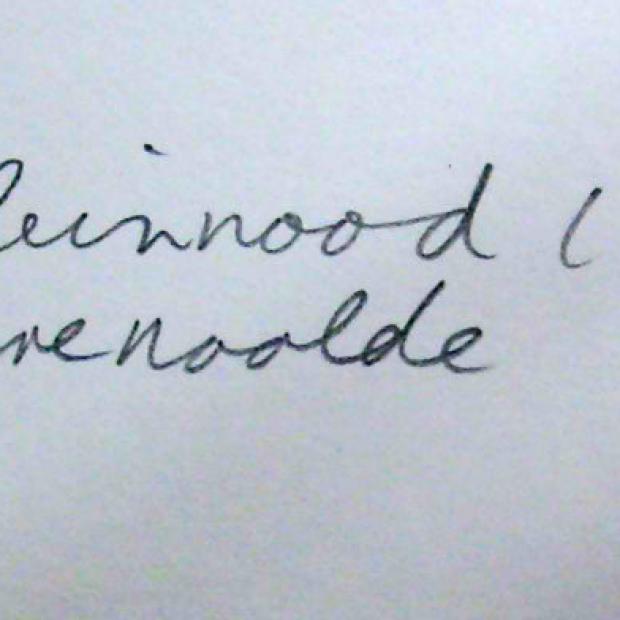 leinnood (
renoolde